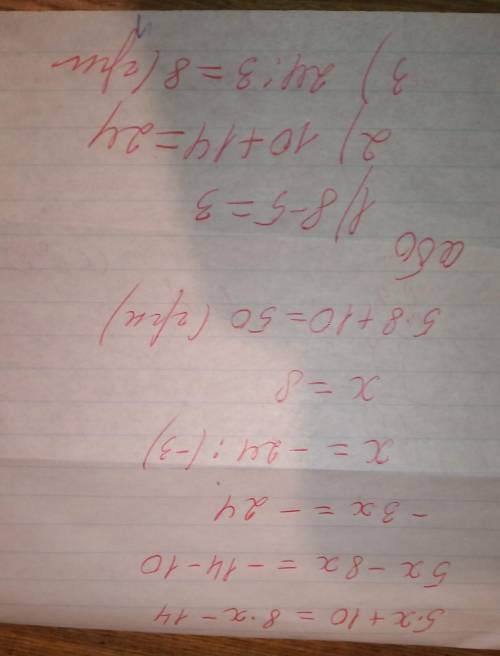 5·x + 10 = 8·x - 14
5x - 8x = - 14 - 10
- 3x = - 24
x = - 24 : (-3)
x = 8
5·8 + 10 = 50 (грн)
або
1) 8 - 5 = 3
2) 10 + 14 = 24
3) 24 : 3 = 8 (грн